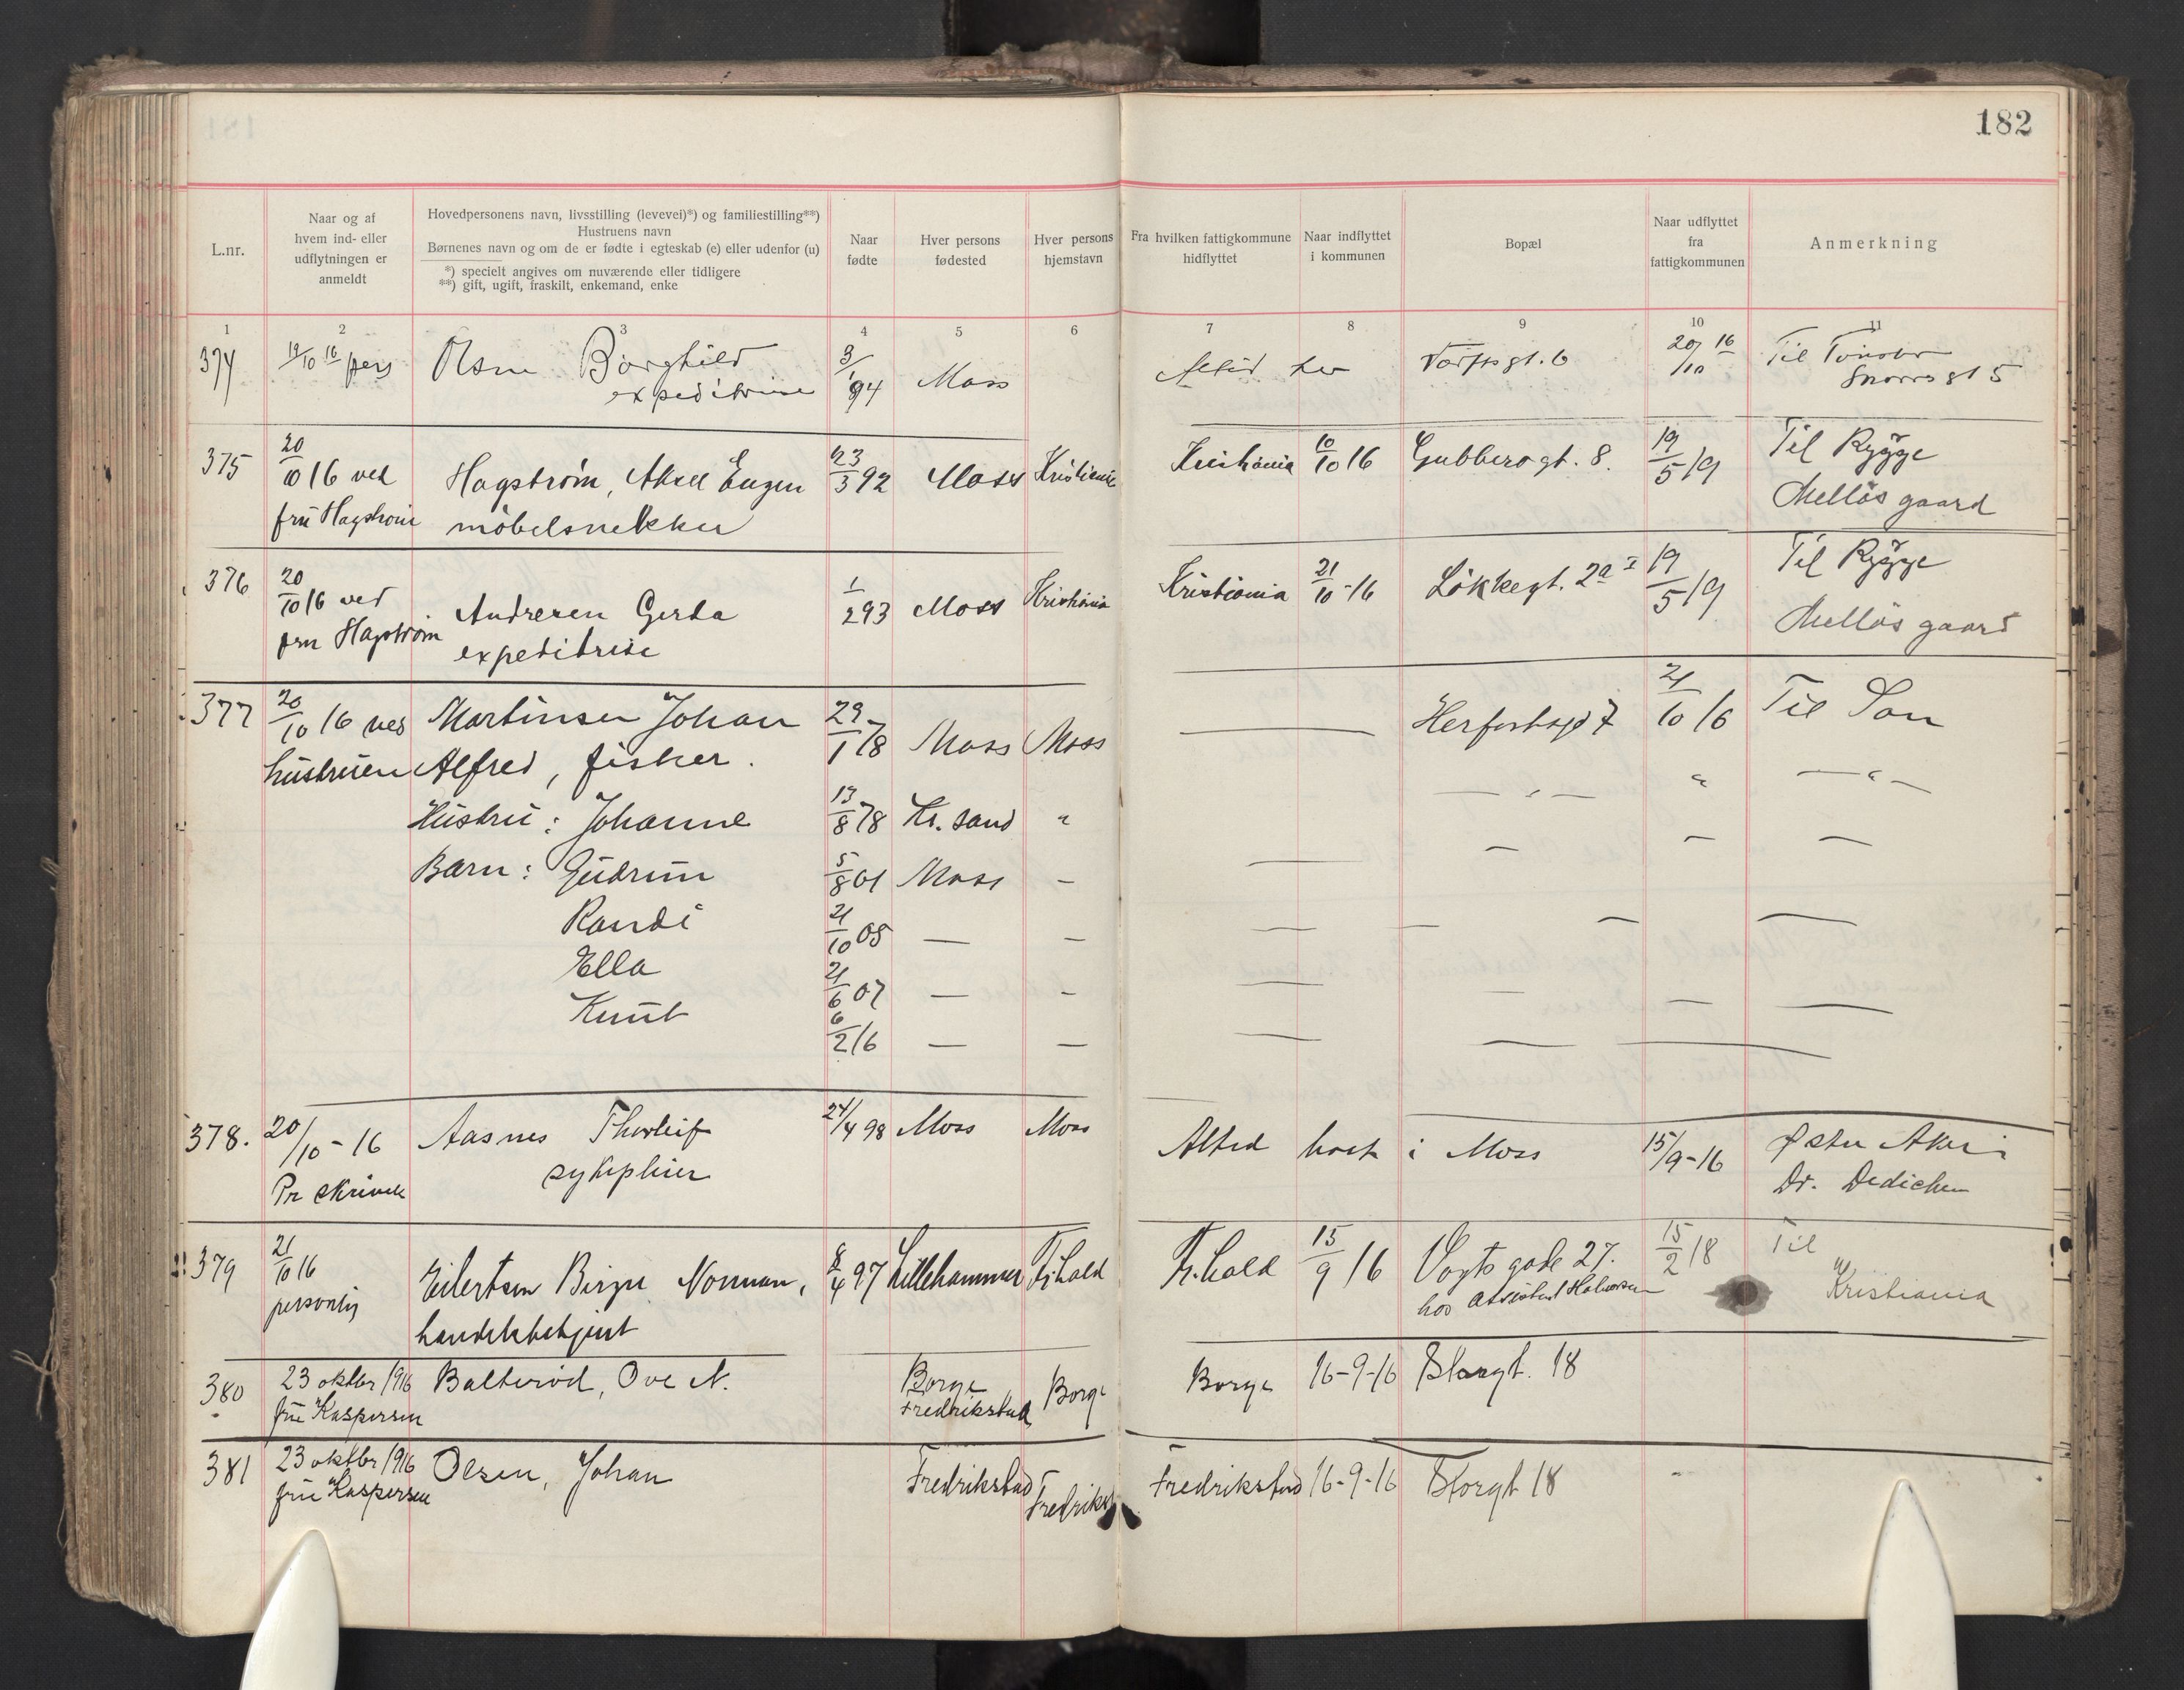 182
L.nr.
Naar og af
hvem ind- eller
udflytningen er
anmeldt
Hovedpersonens navn, livsstilling (levevei)*) og familiestilling**)
Hustruens navn
Børnenes navn og om de er fødte i egteskab (e) eller udenfor (u)
*) specielt angives om nuværende eller tidligere
**) gift, ugift, fraskilt, enkemand, enke
Naar
fødte
Hver persons
fødested
Hver persons
hjemstavn
Fra hvilken fattigkommune
hidflyttet
Naar indflyttet
i kommunen
Bopæl
Naar udflyttet
fra
fattigkommunen
Anmerkning
1 2 3 4 5 6 7 8 9 10 11
374 19/10 16 pers Olsen Borghild 3/1 94 Moss Altid her 6 20/10 16 Til
expeditrise 5
375 20/10 16 ved Hagstrøm, Aksel Eugen 23/3 92 Moss Kristiania Kristiania 10/10 16 Gubberogt. 8. 19/5 19 Til Rygge
fru Hagstrøm møbelsnekker Melløs gaard
376 20/10 16 ved Andresen Gerda 1/2 93 Moss Kristiania Kristiania 21/10-16 Løkkegt. 2a I 19/5 19 Til Rygge
fru Hagstrøm expeditrise Melløs gaard
377 20/10 16 ved Martinsen Johan 29/1 78 Moss Moss — 7 21/10 16 Til Son
hustruen Alfred, fisker.
Hustru: Johanne 13/8 78 Kr. sand "
Barn: Gudrun 5/8 01 Moss —
Randi 21/10 05 — —
Ella 21/6 07 — —
Knut 6/2 16 — —
378. 20/10-16 Aasnes Thorleif 24/4 98 Moss Moss Altid boet i Moss 15/9-16 Østre Aker
Pr skrivels sykepleier Dr. Dedichen
379 21/10 16 Eilertsen Birger Norman, 8/4 97 Lillehammer Fr.hald Fr.hald 15/9 16 Vogts gade 27. 15/2 18 Til
personlig handelsbetjent hos Assistent Halvorsen Kristiania
380 23 oktbr 1916 Balterød, Ove N. Borge Borge Borge 16-9-16 Storgt. 18
fru Kaspersen Fredrikstad
381 23 oktbr 1916 Olsen, Johan Fredrikstad Fredrikst Fredrikstad 16-9-16 Storgt 18
fru Kaspersen